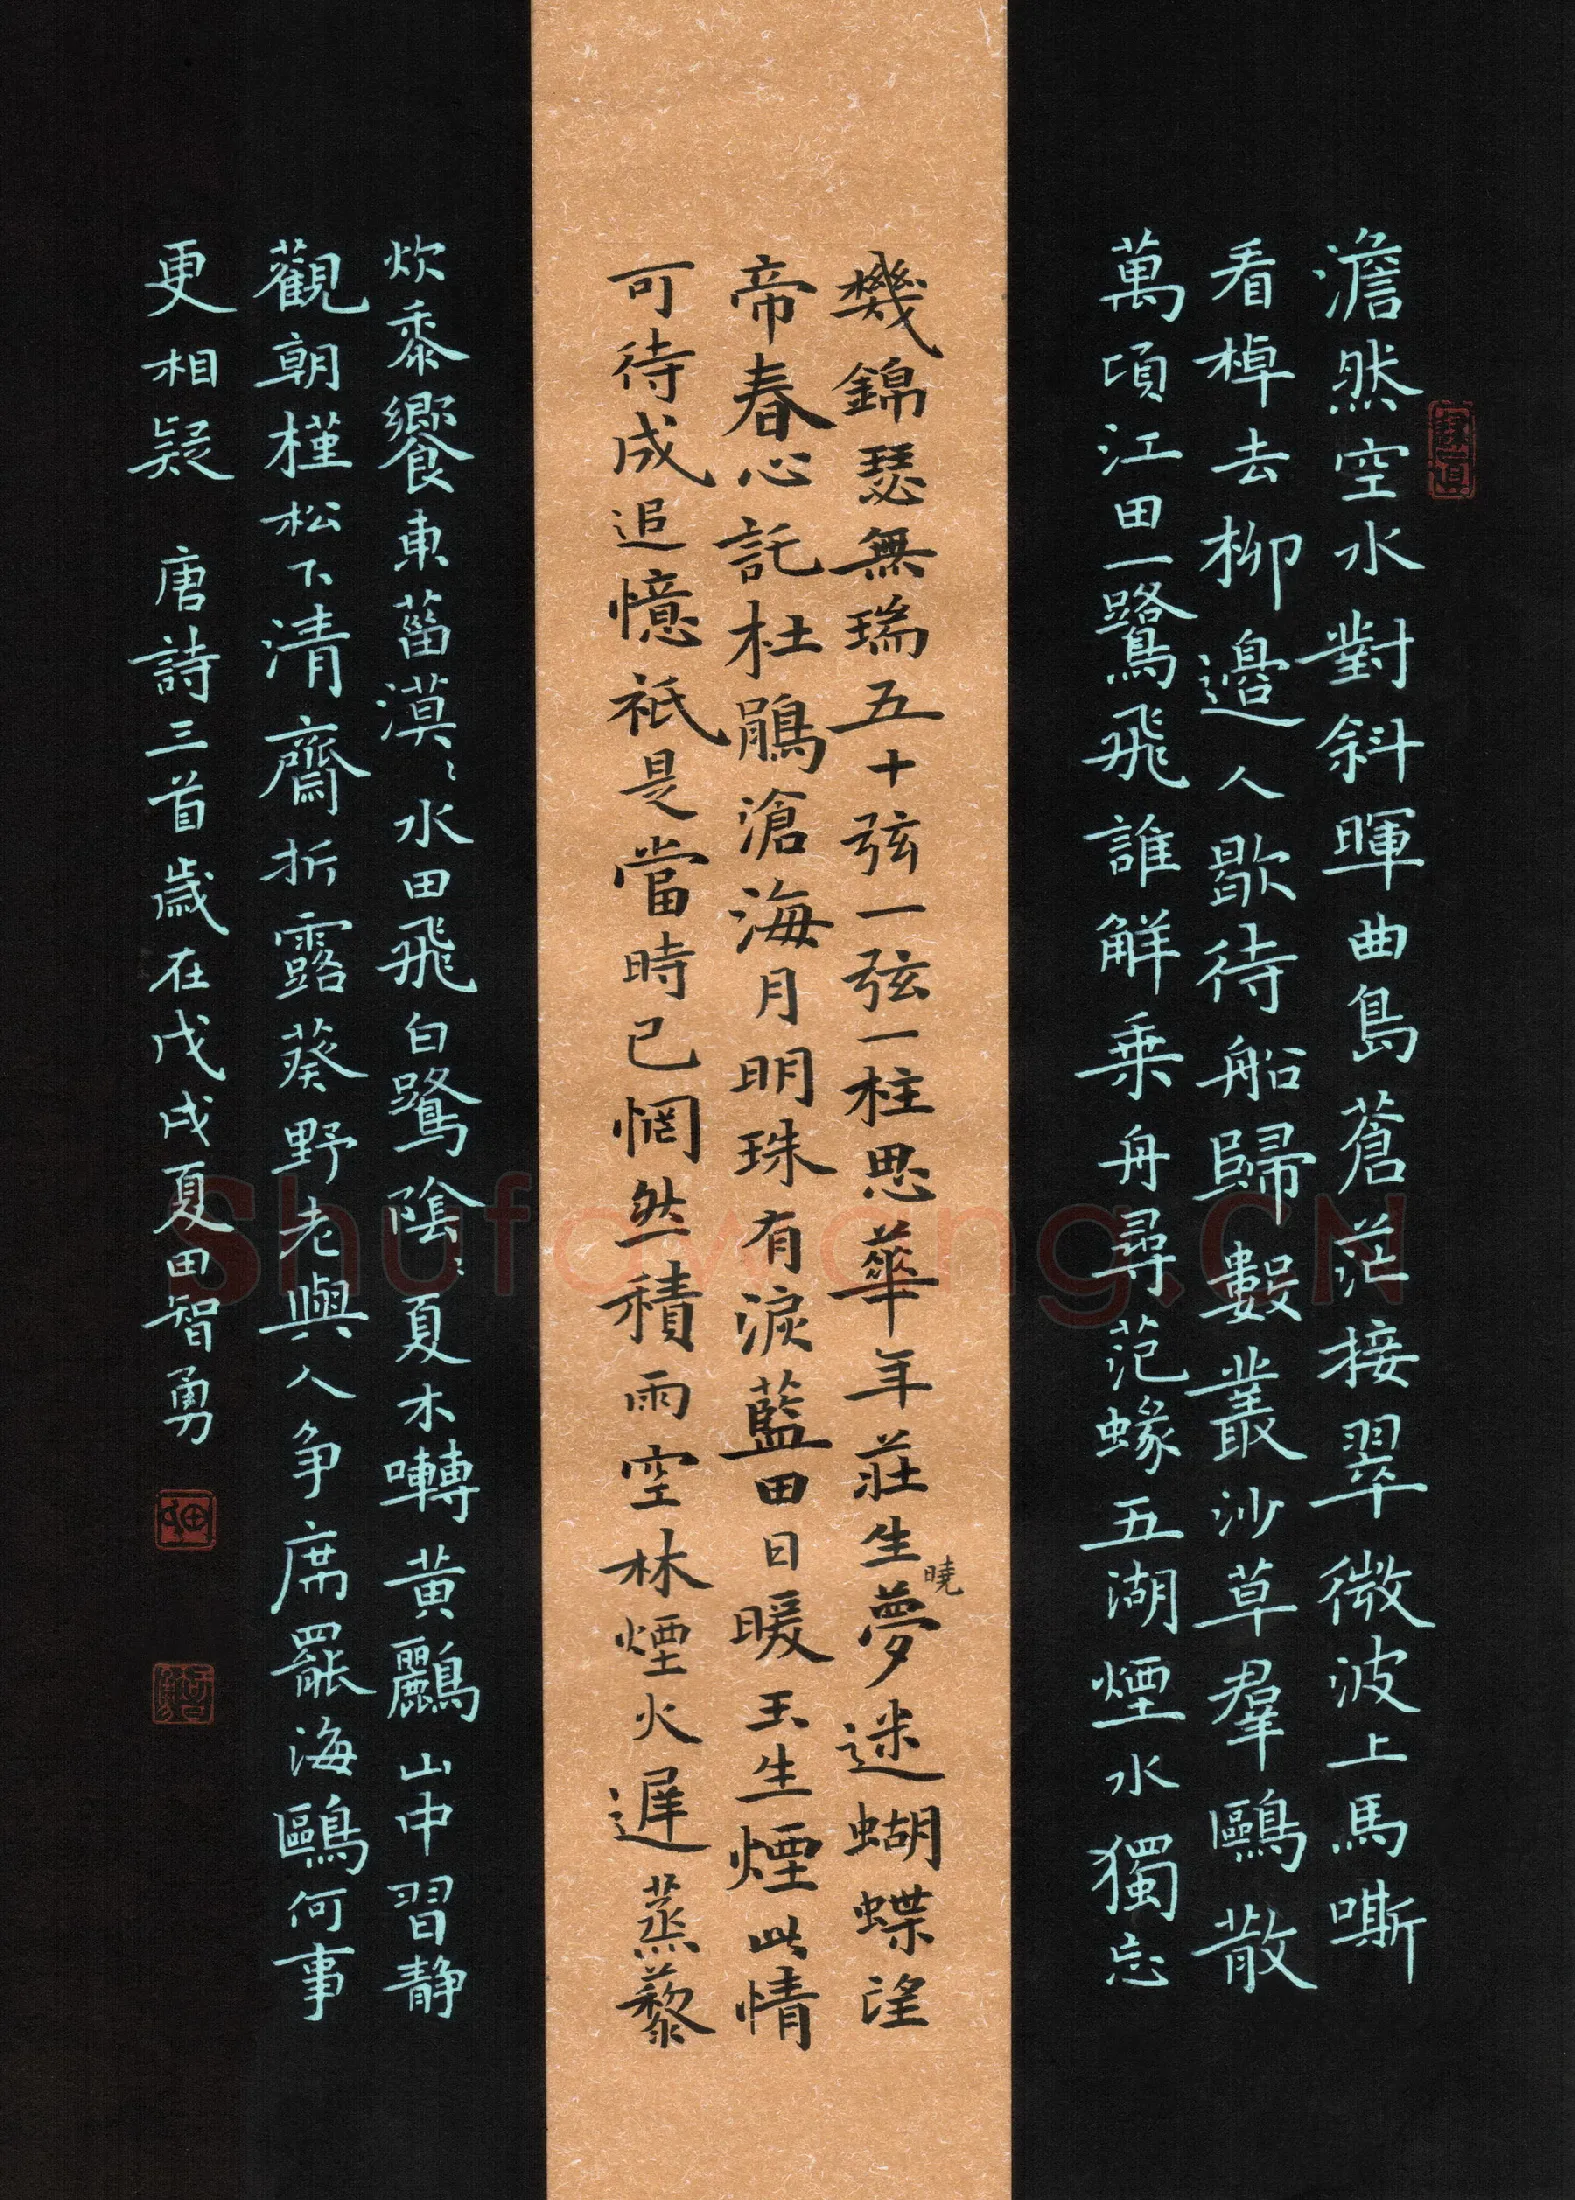 澹然空水對斜暉曲島蒼茫接翠微波上馬嘶
看棹去柳邊人歇待船歸數叢沙草羣鷗散
萬頃江田一鷺飛誰解乘舟尋范蠡五湖煙水獨忘
機錦瑟無端五十弦一弦一柱思華年莊生夢迷蝴蝶望
曉
帝春心託杜鵑滄海月明珠有淚藍田日暖玉生煙此情
可待成追憶祇是當時已惘然積雨空林煙火遲蒸藜
炊黍饗東菑漠〻水田飛白鷺陰〻夏木囀黃鸝山中習静
觀朝槿松下清齋折露葵野老與人争席罷海鷗何事
更相疑 唐詩三首歲在戊戌夏田智勇
Shufawang.CN